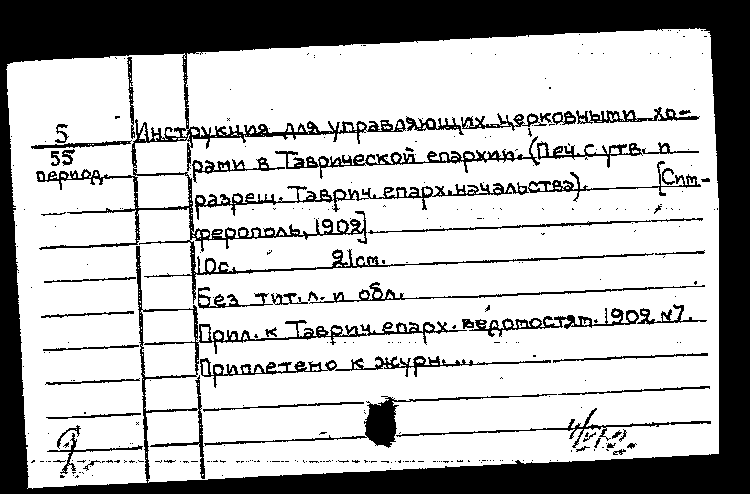 5
55
период.
Инструкция для управляющих церковными хо-
рами в Таврической епархии. (Печ. с утв. и
разреш. Таврич. епарх. начальства). [Сим-
ферополь, 1902].
10с. 21см.
Без тит. л. и обл.
Прил. к Таврич. епарх. ведомостям. 1902 №7.
Приплетено к журн. ...